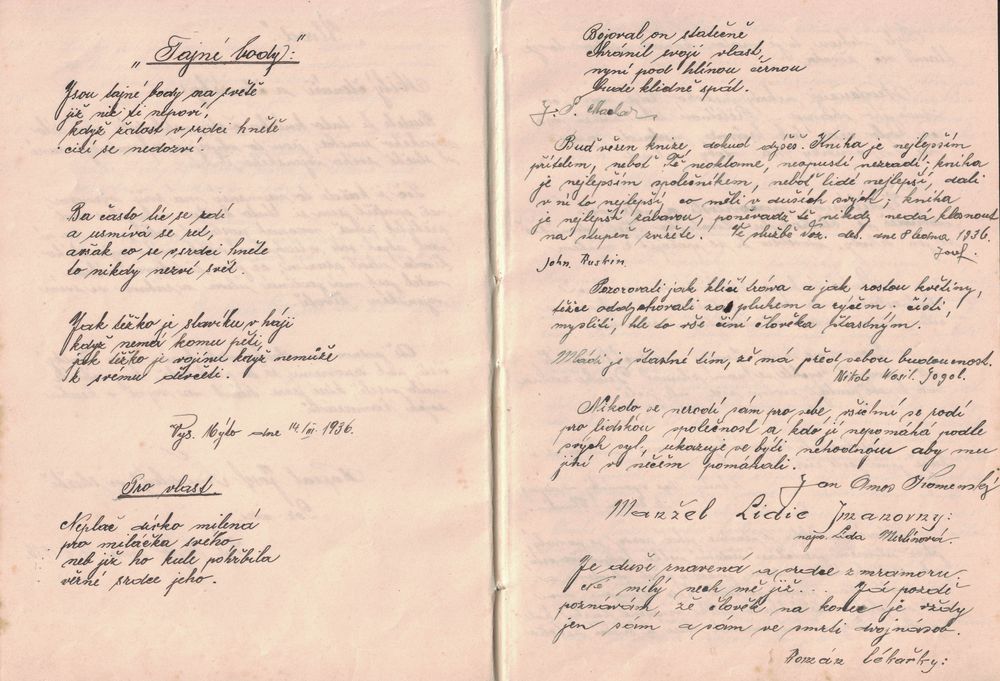 „Tajné body:"
Jsou tajné body na světě
již nic ti nepoví,
když žalost v srdci hnětě
cizí se nedozví.
Ba často líc se rdí
a usmívá se ret,
avšak co se v srdci hněte
to nikdy nezví svět.
Jak těžko je slavíku v háji
když nemá komu pěti,
jak těžko je vojínu když nemůže
k svému děvčeti.
Vys. Mýto dne 14./III. 1936.
Pro vlast.
Neplač dívko milená
pro miláčka svého
neb již ho kule pohřbila
věrné srdce jeho.
Bojoval on statečně
chránil svoji vlast,
nyní pod hlínou černou
bude klidně spát.
J. S. Machar.
Buď věren knize, dokud dýšeš. Kniha je nejlepším
přítelem, neboť Tě neoklame, neopustí nezradí; kniha
je nejlepším společníkem, neboť lidé nejlepší, dali
v ní to nejlepší, co měli v duších svých; kniha
je nejlepší zábavou, poněvadž ti nikdy nedá klesnout
na stupeň zvířete. Ve službě Poz. des. dne 8 ledna 1936.
Josef.
John. Ruskin.
Pozorovati jak klíčí tráva a jak rostou květiny,
těžce oddychovati za pluhem a rýčem: čísti,
mysliti, hle to vše činí člověka šťastným.
Mládí je šťastné tím, že má před sebou budoucnost.
Nikol. Wasil. Gogol.
Nikdo se nerodí sám pro sebe, všichni se rodí
pro lidskou společnost a kdo jí nepomáhá podle
svých syl, ukazuje se býti nehodnou aby mu
jiní v něčem pomáhali.
Jan Amos Komenský
Manžel Lidie Jzanovny:
naps. Lída Merlínová.
Je duše znavená a srdce z mramoru.
Ne milý nech mě již... Já pozdě
poznávám, že člověk na konec je vždy
jen sám, a sám ve smrti dvojnásob.
Román lékařky: